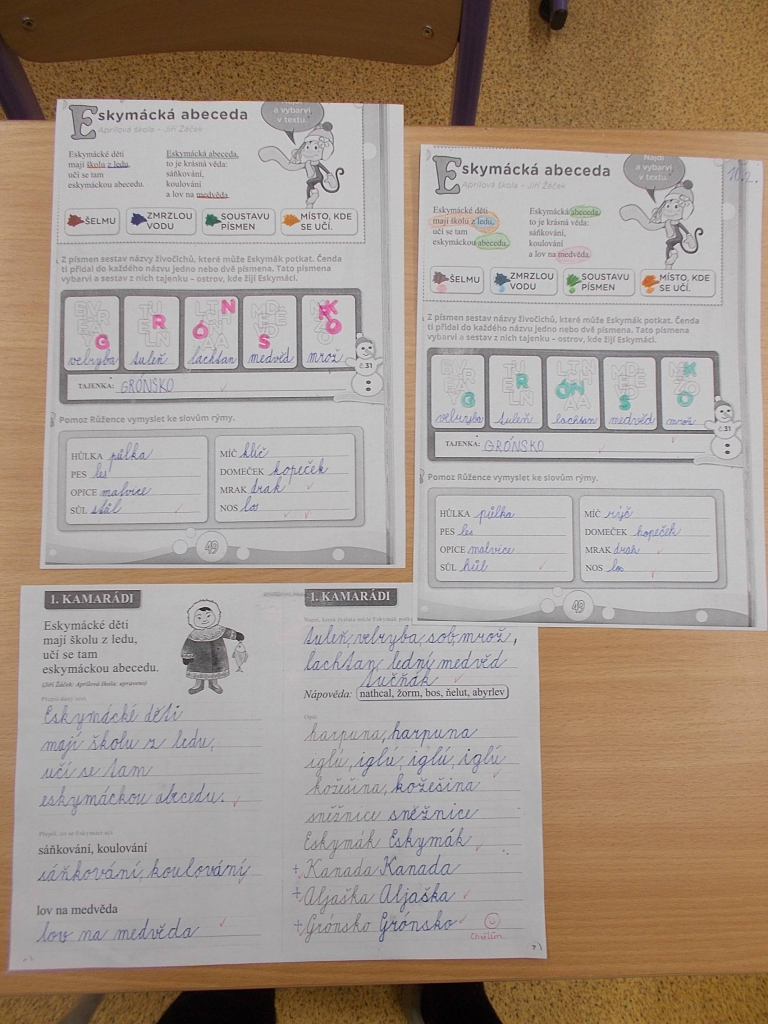 Eskymácká abeceda
Aprílová škola – Jiří Žáček
a vybarvi
v textu.
Eskymácké děti
mají školu z ledu,
učí se tam
eskymáckou abecedu.
Eskymácká abeceda,
to je krásná věda:
sáňkování,
koulování
a lov na medvěda.
ŠELMU
ZMRZLOU
VODU
SOUSTAVU
PÍSMEN
MÍSTO, KDE
SE UČÍ.
Z písmen sestav názvy živočichů, které může Eskymák potkat. Čenda
ti přidal do každého názvu jedno nebo dvě písmena. Tato písmena
vybarvi a sestav z nich tajenku – ostrov, kde žijí Eskymáci.
velryba tuleň lachtan medvěd mrož
TAJENKA: GRÓNSKO
č 31
Pomoz Růžence vymyslet ke slovům rýmy.
HŮLKA půlka
PES les
OPICE malvice
SŮL stůl
MÍČ klíč
DOMEČEK kopeček
MRAK drak
NOS los
49
Eskymácká abeceda
Aprílová škola – Jiří Žáček
Najdi
a vybarvi
v textu.
10.2.
Eskymácké děti
mají školu z ledu,
učí se tam
eskymáckou abecedu.
Eskymácká abeceda,
to je krásná věda:
sáňkování,
koulování
a lov na medvěda.
ŠELMU
ZMRZLOU
VODU
SOUSTAVU
PÍSMEN
MÍSTO, KDE
SE UČÍ.
Z písmen sestav názvy živočichů, které může Eskymák potkat. Čenda
ti přidal do každého názvu jedno nebo dvě písmena. Tato písmena
vybarvi a sestav z nich tajenku – ostrov, kde žijí Eskymáci.
velryba tuleň lachtan medvěd mrož
TAJENKA: GRÓNSKO
č 31
Pomoz Růžence vymyslet ke slovům rýmy.
HŮLKA půlka
PES les
OPICE malvice
SŮL hůl
MÍČ rýč
DOMEČEK kopeček
MRAK drak
NOS los
49
1. KAMARÁDI
Eskymácké děti
mají školu z ledu,
učí se tam
eskymáckou abecedu.
(Jiří Žáček: Aprílová škola; upraveno)
Eskymácké děti
mají školu z ledu,
učí se tam
eskymáckou abecedu.
Přepiš, co se Eskymáci učí
sáňkování, koulování
sáňkování, koulování
lov na medvěda
lov na medvěda
1. KAMARÁDI
tuleň, velryba, sob, mrož,
lachtan, lední medvěd
tučňák
Nápověda: nathcal, žorm, bos, ňelut, abyrlev
Opiš
harpuna, harpuna
iglú, iglú, iglú, iglú
kožešina, kožešina
sněžnice sněžnice
Eskymák Eskymák
Kanada Kanada
Aljaška Aljaška
Grónsko Grónsko
Chválím